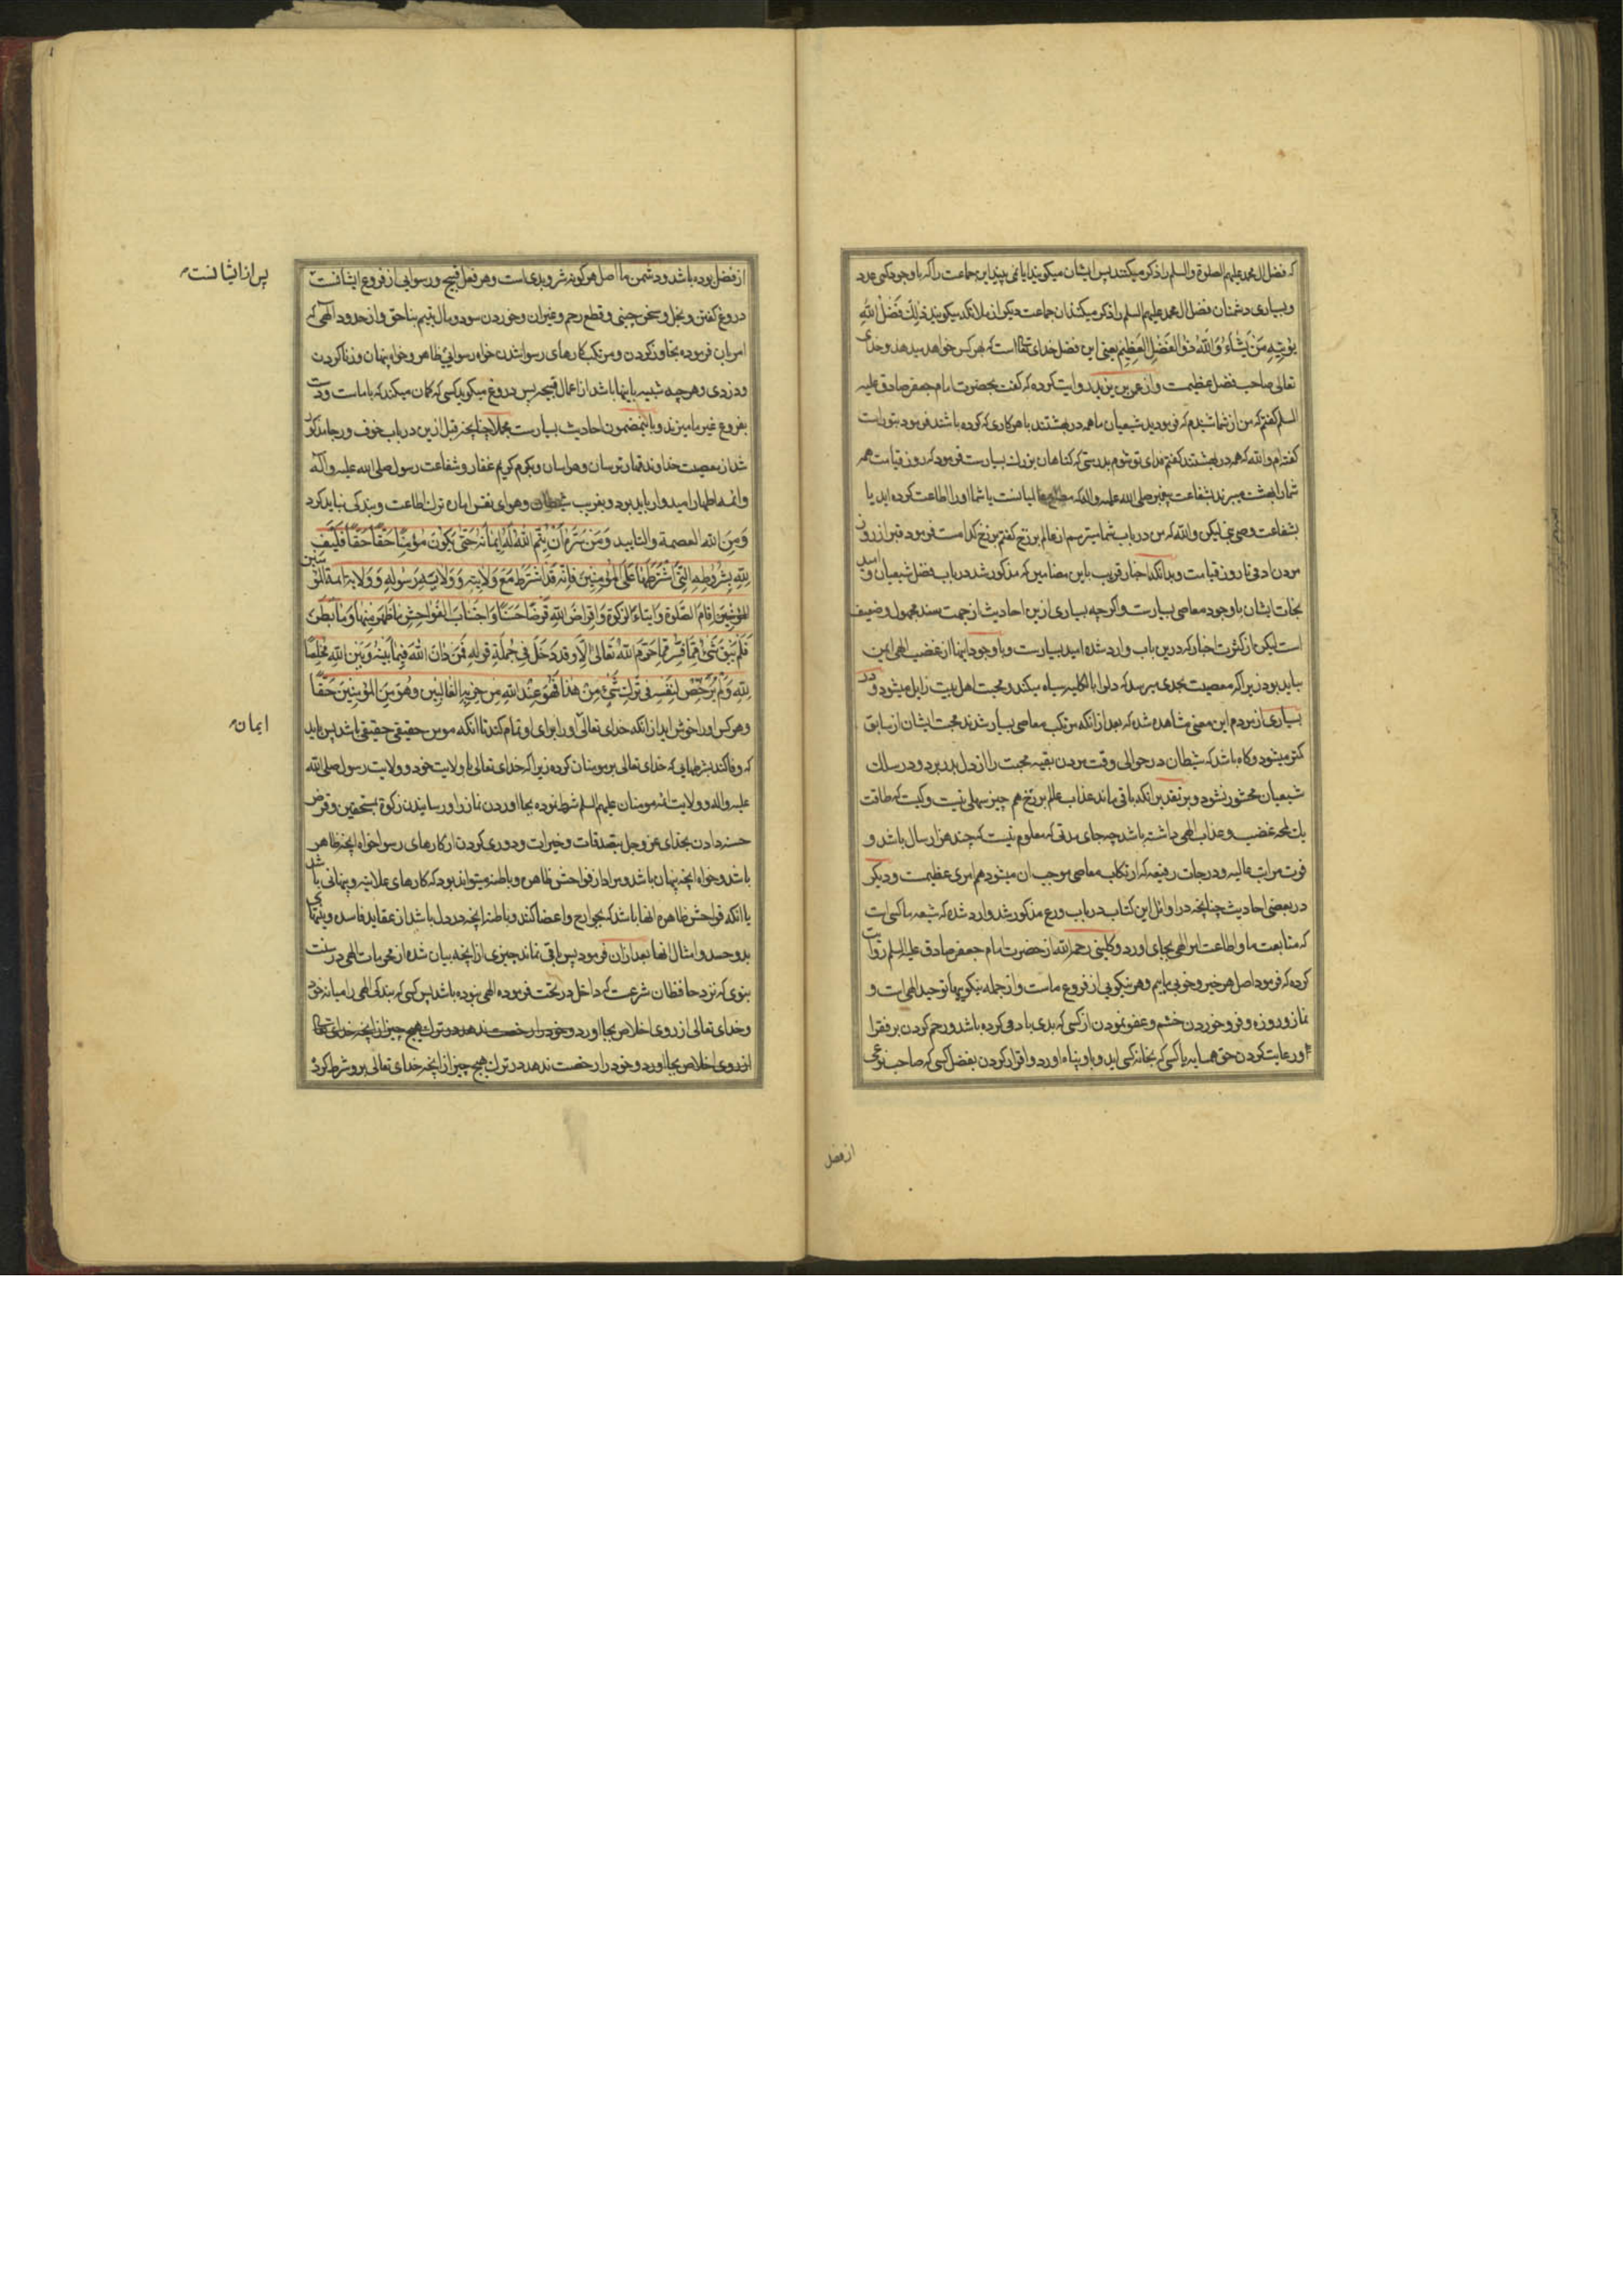 که فضل ال محمد علیهم الصلوة والسلم را ذکر میکنند پس ایشان میکویند ایا نمی بینید این جماعت را که با وجود کمی عدد
وبسیاری دشمنان فضل ال محمد علیهم السلم را ذکر میکنند ان جماعت دیکر از ملائکه میکویند ذٰلِكَ فَضْلُ اللّٰهِ
یُؤْتِیهِ مَنْ یَشَاءُ وَاللّٰهُ ذُو الْفَضْلِ الْعَظِیمِ یعنی این فضل خدای تعالی است که بهر کس خواهد میدهد وخدای
تعالی صاحب فضل عظیمست واز عمر بن یزید روایت کرده که کفت بحضرت امام جعفر صادق علیه
السلم کفتم که من از شما شنیدم که فرمودید شیعیان ما همه در بهشتند با هر کاری که کرده باشند فرمود بتو راست
کفته ام والله که همه در بهشتند کفتم فدای تو شوم بدرستی که کناهان بزرك بسیارست فرمود که روز قیامت همه
شما را بهشت میبرند بشفاعت پیغمبر صلی الله علیه واله که مطاع یا شما او را اطاعت کرده اید یا
بشفاعت وصی نبی لیکن والله که من در باب شما میترسم از عالم برزخ کفتم برزخ کدامست فرمود قبر از روز
مردن ادمی تا روز قیامت وبدانکه اخبار قریب باین مضامین که مذکور شد در باب فضل شیعیان و امید
نجات ایشان با وجود معاصی بسیارست واکر چه بسیاری ازین احادیث از جهت سند مجهول وضعیف
است لیکن از کثرت اخبار که درین باب وارد شده امید بسیارست وبا وجود اینها از غضب الهی ایمن
نباید بود زیرا که معصیت بحدی میرسد که دلها را بالکلیه سیاه میکند ومحبت اهل بیت زایل میشود و در
بسیاری از مردم این معنی مشاهده شد که بعد از انکه مرتکب معاصی بسیار شدند محبت ایشان از سابق
کمتر میشود وکاه باشد که شیطان در حوالی وقت مردن بقیه محبت را از دل بدر برد و در سلك
شیعیان محشور نشود وبر تقدیر انکه باقی ماند عذاب عالم برزخ هم چیز سهلی نیست وکیست که طاقت
یك لمحه غضب وعذاب الهی داشته باشد چه جای مدتی که معلوم نیست که چند هزار سال باشد و
فوت مراتب عالیه ودرجات رفیعه که ارتکاب معاصی موجب ان میشود هم امری عظیمست ودیکر
در بعضی احادیث چنانچه در اوائل این کتاب در باب ورع مذکور شد وارد شده که شیعه ما کسی است
که متابعت ما واطاعت امر الهی بجای اورد وکلینی رحمه الله از حضرت امام جعفر صادق علیه السلم روایت
کرده که فرمود اصل هر خیر وخوبی ماییم وهر نیکویی از فروع ماست واز جمله نیکویها توحید الهی است و
نماز وروزه وفرو خوردن خشم وعفو نمودن از کسی که بدی با ادمی کرده باشد ورحم کردن بر فقرا
ورعایت کردن حق همسایه یا کسی که بخانه کسی اید وباو پناه اورد واقرار کردن بفضل کسی که صاحب نوعی
از فضل
از فضل بوده باشد ودشمن ما اصل هر کونه شر وبدی است وهر فعل قبیح ورسوایی از فروع ایشانست
پس از ایشانست
دروغ کفتن وبخل وسخن چینی وقطع رحم وخوردن سود ومال یتیم بناحق واز حدود الهی که
امر بان فرموده تجاوز کردن ومرتکب کارهای رسوا شدن خواه رسوایی ظاهر وخواه پنهان وزنا کردن
ودزدی وهر چه شبیه باینها باشد از اعمال قبیحه پس دروغ میکوید کسی که کمان میکند که با ماست ودست
بفروع غیر ما میزند وباینمضمون احادیث بسیارست مجملا چنانچه قبل ازین در باب خوف ورجا مذکور
شد از معصیت خداوند قهار ترسان وهراسان وبکرم کریم غفار وشفاعت رسول صلی الله علیه واله
وائمه اطهار امیدوار باید بود وبفریب شیطان وهوای نفس اماره ترك اطاعت وبندکی نباید کرد
وَمِنَ الله العصمة والتایید وَمَنْ سَرَّهُ اَنْ یُتِمَّ اللّٰهُ لَهُ اِیمَانَهُ حَتّٰی یَکُونَ مُؤْمِنًا حَقًّا حَقًّا فَلْیَفِ
لِلّٰهِ بِشُرُوطِهِ الَّتِی اشْتَرَطَهَا عَلَی الْمُؤْمِنِینَ فَاِنَّهُ قَدِ اشْتَرَطَ مَعَ وَلَایَتِهِ وَ وَلَایَةِ رَسُولِهِ وَ وَلَایَةِ ائمة المؤمنین
المؤمنین اِقَامَ الصَّلوةِ وَاِیتَاءَ الزَّکوةِ وَاِقْرَاضَ اللّٰهِ قَرْضًا حَسَنًا وَاجْتِنَابَ الْفَوَاحِشِ مَا ظَهَرَ مِنْهَا وَمَا بَطَنَ
فَلَمْ یَبْقَ شَیْءٌ مِمَّا فُسِّرَ مِمَّا حَرَّمَ اللّٰهُ تَعَالٰی اِلَّا وَقَدْ دَخَلَ فِی جُمْلَةِ قَوْلِهِ فَمَنْ دَانَ اللّٰهَ فِیمَا بَیْنَهُ وَبَیْنَ اللّٰهِ مُخْلِصًا
لِلّٰهِ وَلَمْ یُرَخِّصْ لِنَفْسِهِ فِی تَرْكِ شَیْءٍ مِنْ هٰذَا فَهُوَ عِنْدَ اللّٰهِ مِنْ حِزْبِهِ الْغَالِبِینَ وَهُوَ مِنَ الْمُؤْمِنِینَ حَقًّا
وهر کس اورا خوش اید از انکه خدای تعالی اورا برای او تمام کند تا انکه مومن حقیقی حقیقی باشد پس باید
ایمان
که وفا کند بشرطهایی که خدای تعالی بر مومنان کرده زیرا که خدای تعالی با ولایت خود وولایت رسول صلی الله
علیه واله وولایت ائمه مومنان علیهم السلم شرط نموده بجا اوردن نماز را ورسانیدن زکوة بمستحقین وقرض
حسنه دادن بخدای عز وجل بتصدقات وخیرات ودوری کردن از کارهای رسوا خواه انچه ظاهر
باشد وخواه انچه پنهان باشد ومراد از فواحش ظاهره وباطنه میتواند بود که کارهای علانیه وپنهانی باشد
یا انکه فواحش ظاهره انها باشد که بجوارح واعضا کنند وباطنه انچه در دل باشد از عقاید فاسده ونیتهای
بد وحسد وامثال انها بعد ازان فرمود پس باقی نماند چیزی از انچه بیان شده از محرمات الهی در سنت
نبوی که نزد حافظان شرعست که داخل در تحت فرموده الهی نبوده باشد پس کسی که بندکی الهی را میانه خود
وخدای تعالی از روی اخلاص بجا اورد وخود را رخصت ندهد در ترك هیچ چیز از انچه خدای تعالی
از روی اخلاص بجا اورد وخود را رخصت ندهد در ترك هیچ چیز از انچه خدای تعالی برو شرط کرده